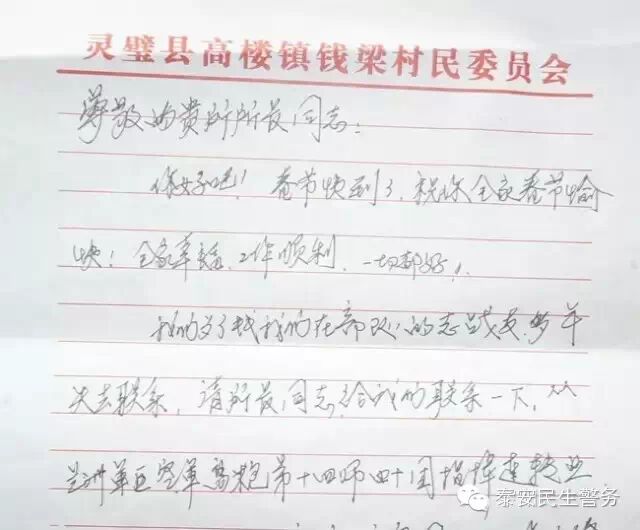 灵璧县高楼镇钱梁村民委员会
尊敬的黄所所长同志:
你好吧!春节快到了,祝你全家春节愉
快!全家幸福,工作顺利,一切都好!
我们为了找我们在部队的老战友,多年
失去联系,请所长同志给我们联系一下,从
兰州军区空军高炮第十四师四十团指挥连转业
泰安民生警务